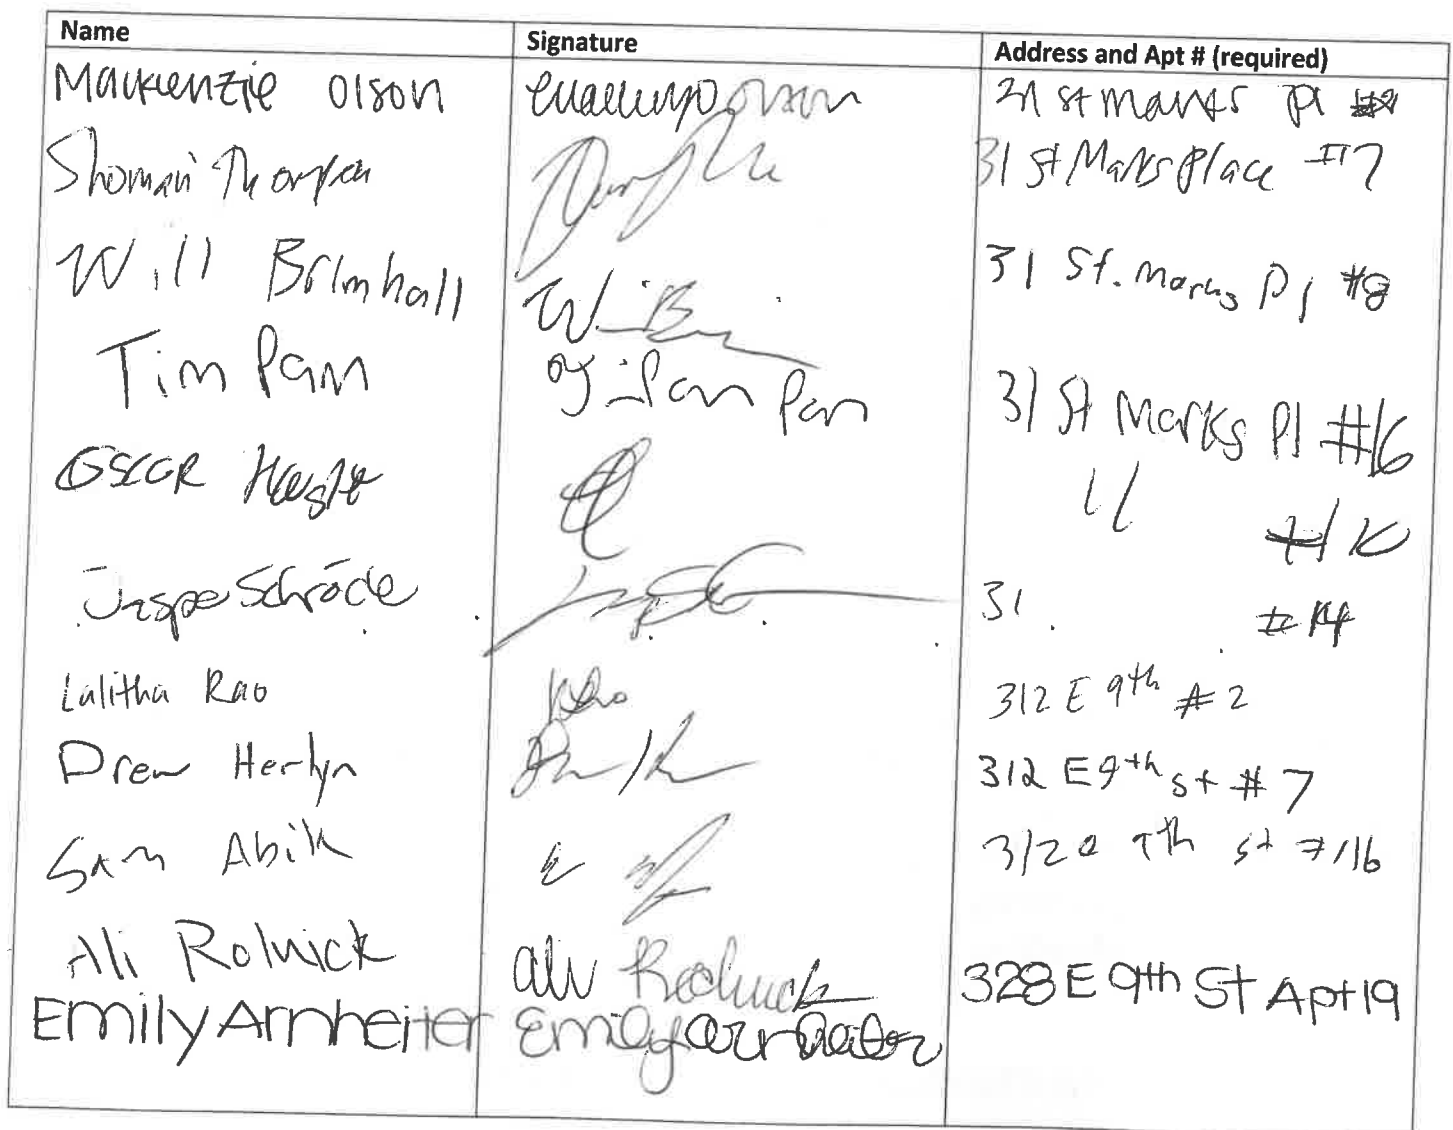 Name Signature Address and Apt # (required)
Mackenzie Olson 31 St Marks Pl
31 St Marks Place #7
Will Brimhall 31 St. Marks Pl #8
Tim Pam 31 St Marks Pl #16
Oscar 11 #10
Schröde 31 #14
Lalitha Rao Rao 312 E 9th #2
Drew Herlyn 312 E 9th St #7
Sam Abik 312 e 9th St #16
Ali Rolnick Ali Rolnick 328 E 9th St Apt 19
Emily Arnheiter Emily Arnheiter